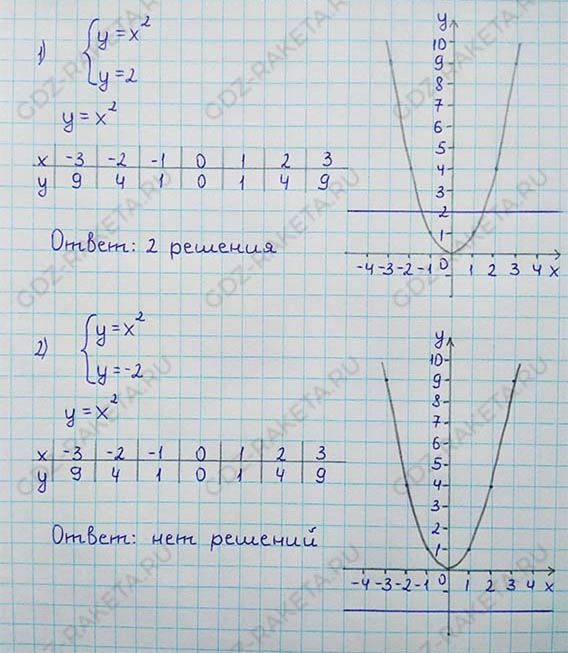 1) { y = x²
y = 2
y = x²
x -3 -2 -1 0 1 2 3
y 9 4 1 0 1 4 9
Ответ: 2 решения
y
10
9
8
7
6
5
4
3
2
1
-4 -3 -2 -1 0 1 2 3 4 x
2) { y = x²
y = -2
y = x²
x -3 -2 -1 0 1 2 3
y 9 4 1 0 1 4 9
Ответ: нет решений
y
10
9
8
7
6
5
4
3
2
1
-4 -3 -2 -1 0 1 2 3 4 x
GDZ-RAKETA.RU